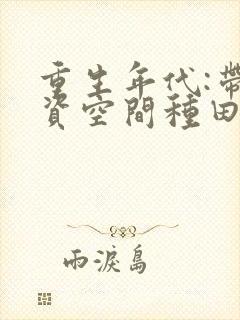 重生年代:帶
資空間種田
雨淚島